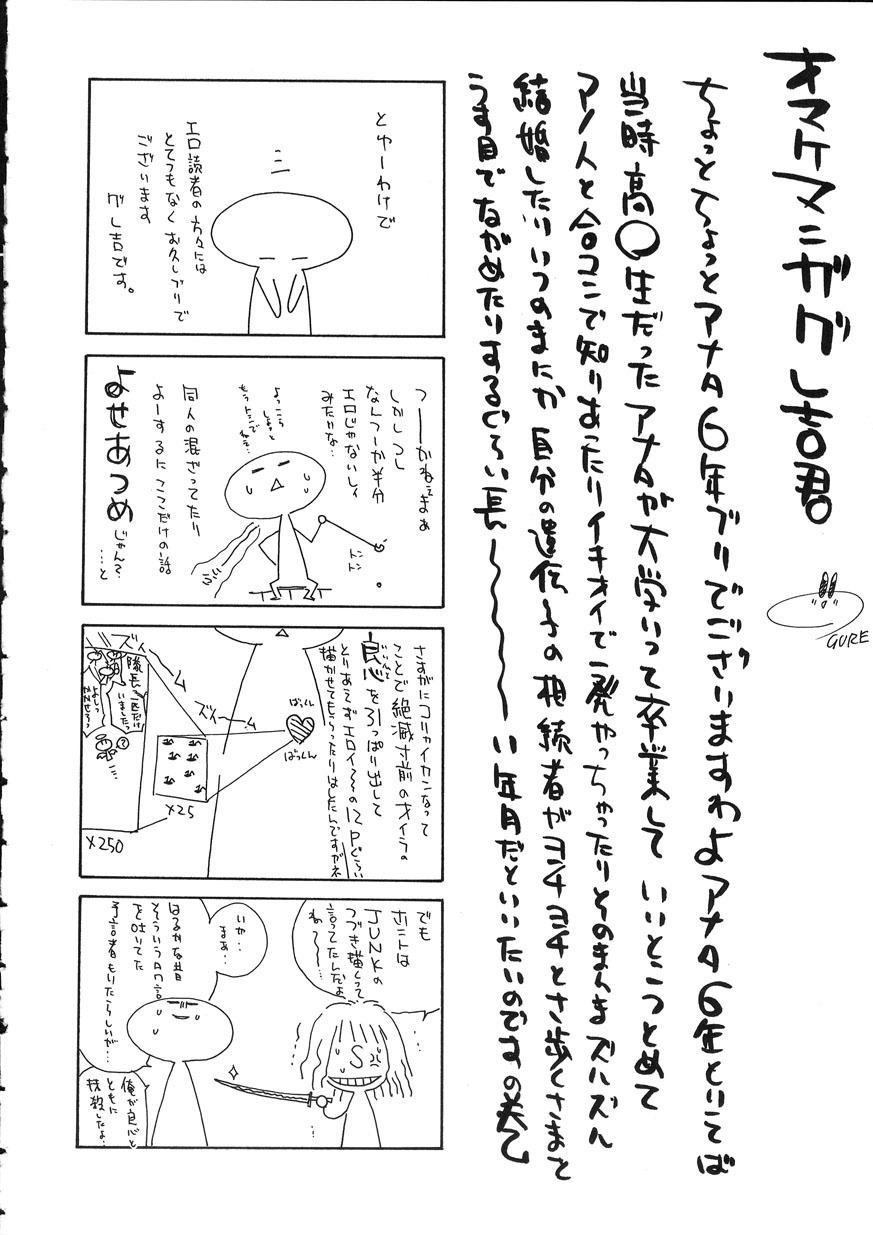 オマケマンガグレ吉君
GURE
ちょっとちょっとアナタ6年ブリでございますわよアナタ6年といてば
当時高〇生だったアナタが大学いって卒業していいとこつとめて
アノ人と合コンで知りあったりイキオイで一発やっちゃったりとそのまんまズルズル
結婚したりいつのまにか自分の遺伝子の相続者がヨチヨチとさ歩くさまを
うす目でながめたりするぐらい長〜〜い年月だといいたいのですの巻
とゆーわけで
エロ読者の方々には
とてつもなくお久しブリで
ございます
グレ吉です。
つーかねぇまぁ
しかしつし
なんつーか半分
エロじゃないしィ
みたいな…
よっこら
しょっと
もうトシで
ねぇ…
トントン
同人の混ざってたり
よーするにここだけの話
よせあつめじゃん?
…と
さすがにコリャイカンなって
ことで絶滅寸前のオイラの
良心を引っぱり出して
とりあえずエロイ〜の12Pぐらい
描かせてもらったりはしたんですがネ
ばっくん
ばっくん
ズィーーム
×25
ズィーーム
×250
隊長一匹だけ
いましたっ
よしっ
でも
ホントは
JUNKの
つづき描くって
言ってたんだよ
ね〜〜…
S
いや…
まぁ…
はるかな昔
そういうタワ言
を吐いてた
予言者もいたらしいが…
俺が良心と
ともに
抹殺したよ…